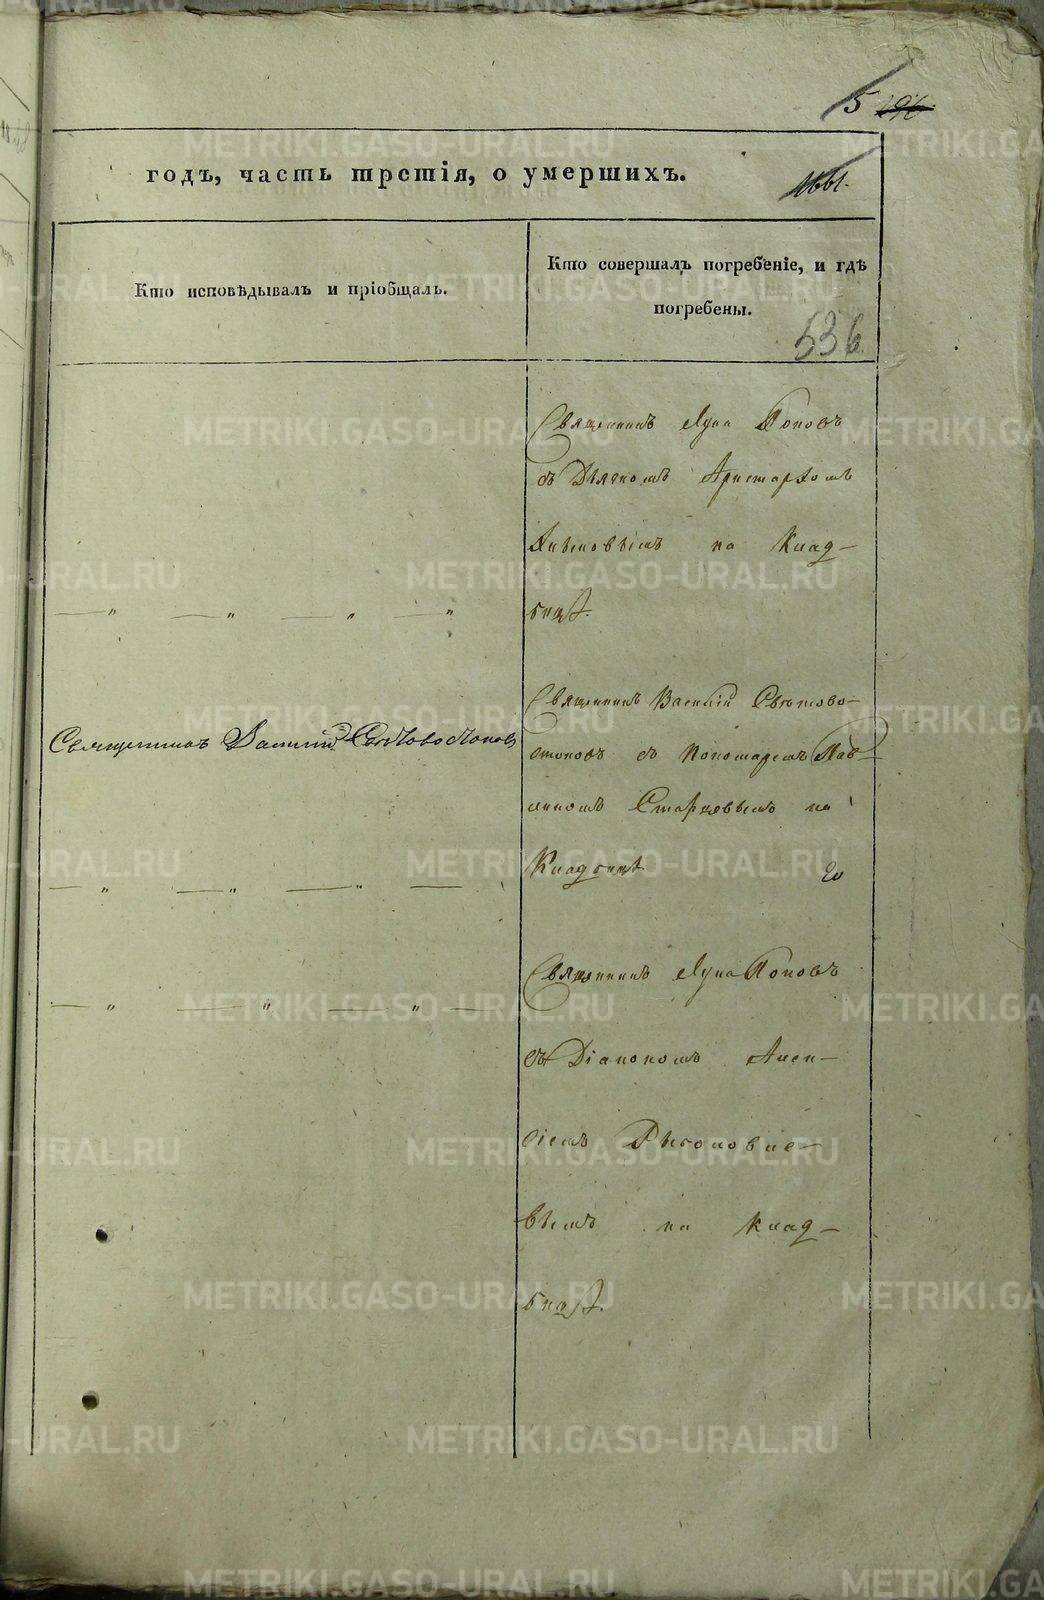 5 296
годъ, часть третія, о умершихъ.
1661.
Кто исповѣдывалъ и пріобщалъ.
Кто совершалъ погребеніе, и гдѣ
погребены.
536
Священникъ Лука Поповъ
съ Дьячкомъ Аристархомъ
на Клад-
бищѣ.
Священникъ Василій Свѣтовостоковъ
Священникъ Василій Свѣтово-
стоковъ съ Пономаремъ Пав-
линомъ Старцовымъ на
Кладбищѣ
Священникъ Лука Поповъ
съ Діакономъ Алек-
сіемъ
вымъ на клад-
бищѣ.
METRIKI.GASO-URAL.RU